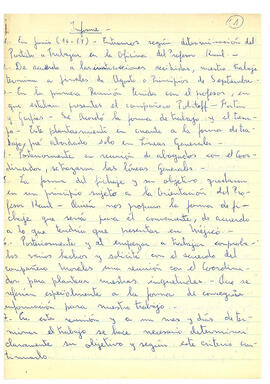 Informe.-
1.- En junio (16-17) Entramos según determinación del
Partido a Trabajar en la Oficina del Profesor
2.- De acuerdo a las instrucciones recibidas, nuestro trabajo
termina a finales de Agosto o Principios de Septiembre.-
3.- En la primera Reunión tenida con el profesor, en
que estaban presentes el compañero Politoff - Fortín
y . Se Acordó la forma de trabajo y el tiempo
po.- Este planteamiento en cuanto a la forma de tra
bajo, fué abordado solo en Líneas Generales.-
4. Posteriormente en reunión de abogados con el Coor
dinador, se trazaron las líneas Generales.
5.- La forma del fichaje y su objetivo quedaron
en un principio sujeto a la Orientación del Pro
fesor Quién nos propuso la forma de fi
chaje que sería para él conveniente, de acuerdo
a lo que tendría que presentar en Méjico.-
6.- Posteriormente y al empezar a trabajar comproba
mos varios hechos y solicité con el acuerdo del
compañero Morales una reunión con el Coordina
dor para plantear nuestras inquietudes.- Que se
referían especialmente a la forma de conseguir
información para nuestro trabajo.-
7.- En esta reunión y a un mes y días de ter
minar el trabajo se hace necesario determinar
claramente su objetivo y según este criterio con
tinuarlo.-